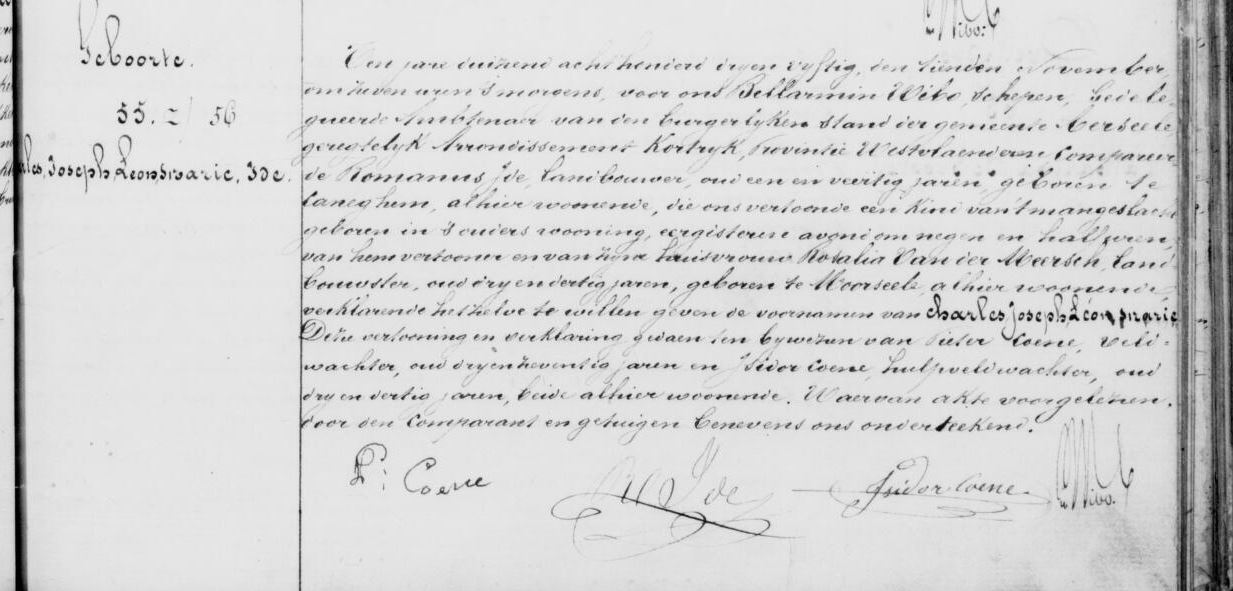 Wibo.
Geboorte.
55. 56
les, Joseph, Léon, Marie, Ide.
Den jare duizend acht honderd dryen vyftig, den tienden November,
om zeven uren 's morgens, voor ons Bellarmin Wibo, Schepen, gedele-
gueerde Ambtenaer van den burgerlyken stand der gemeente Aerseele
geregtelyk Arrondissement Kortryk, provintie Westvlaenderen Compareer-
de Romanus Ide, landbouwer, oud een en veertig jaren, geboren te
Caneghem, alhier woonende, die ons vertoonde een kind van 't mangeslacht
geboren in 's ouders wooning, eergisteren avond om negen en half uren,
van hem vertooner en van zyne huisvrouw Rosalia Van der Meersch, land-
bouwster, oud dry en dertig jaren, geboren te Moorseele, alhier woonende,
verklarende hetzelve te willen geven de voornamen van Charles Joseph Léon Marie
Deze vertooning en verklaring gedaen ten bywezen van Pieter Coene, veld-
wachter, oud dryenzeventig jaren en Isidor Coene, hulpveldwachter, oud
dry en dertig jaren, beide alhier woonende. Waervan akte voorgelezen.
door den Comparant en getuigen benevens ons onderteekend.
P: Coene R Ide Isidor Coene. Wibo.